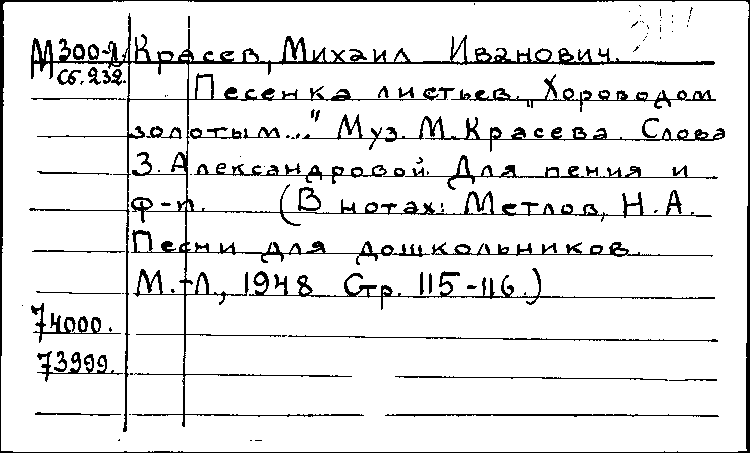 М300-2 Красев, Михаил Иванович.
Сб.232.
Песенка листьев. „Хороводом
золотым..." Муз. М. Красева. Слова
З. Александровой. Для пения и
ф-п. (В нотах: Метлов, Н.А.
Песни для дошкольников.
М.-Л., 1948 Стр. 115-116.)
74000.
73999.